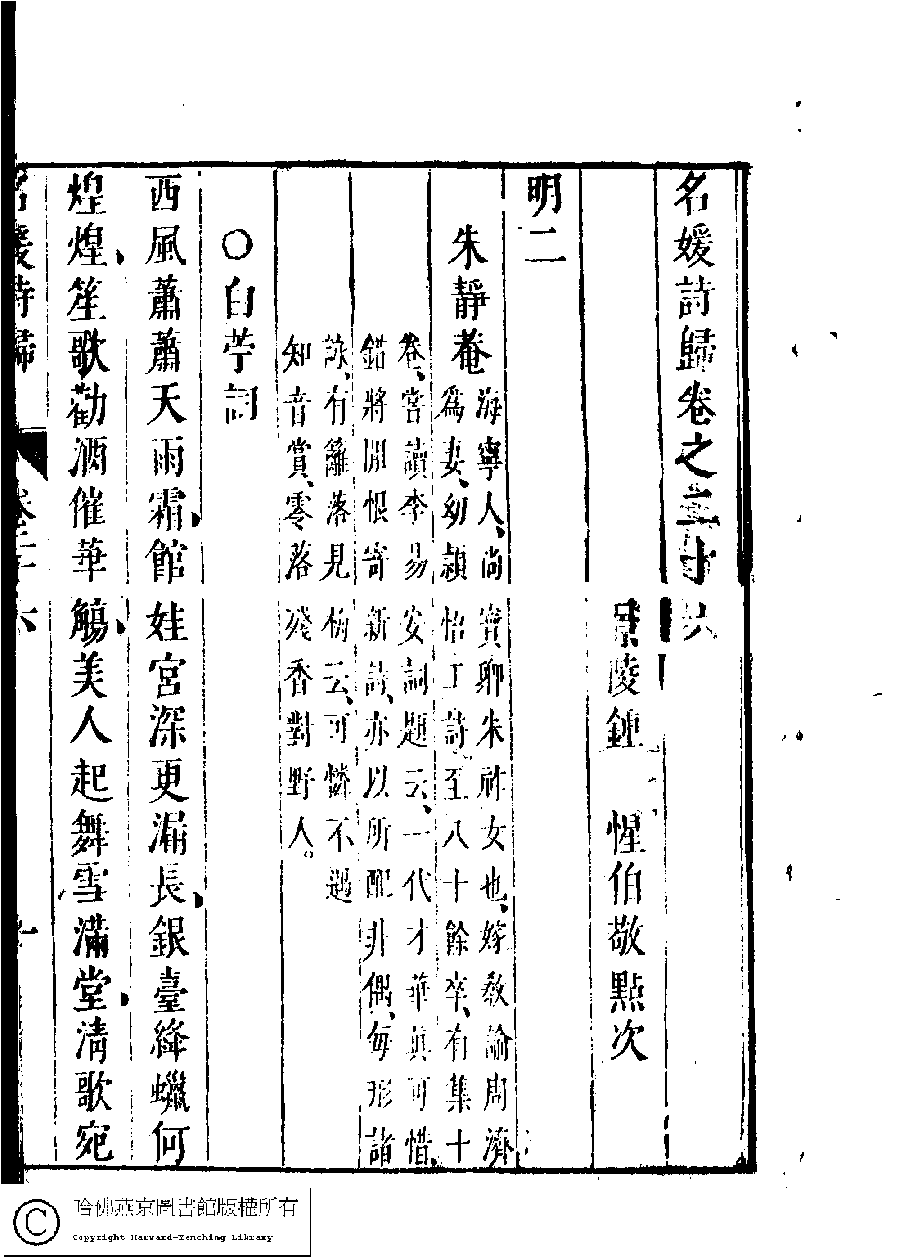 名媛詩歸卷之二十六
景陵鍾 惺伯敬點次
明二
朱靜菴
海寧人、尚寶聊朱祚女也、嫁教諭周濟
為妻、幼穎悟工詩至八十餘卒、有集十
卷、嘗讀李易安詞題云、一代才華真可惜、
錯將閒恨寄新詩、亦以所配非偶、每形諸
詠、有籬落見梅云、可憐不遇
知音賞、零落殘香對野人。
○白苧詞
西風蕭蕭天雨霜、館娃宮深更漏長、銀臺絳蠟何
煌煌、笙歌勸酒催華觴、美人起舞雪滿堂、清歌宛
名媛詩歸 卷二十六 一
哈佛燕京圖書館版權所有
Copyright Harvard-Yenching Library